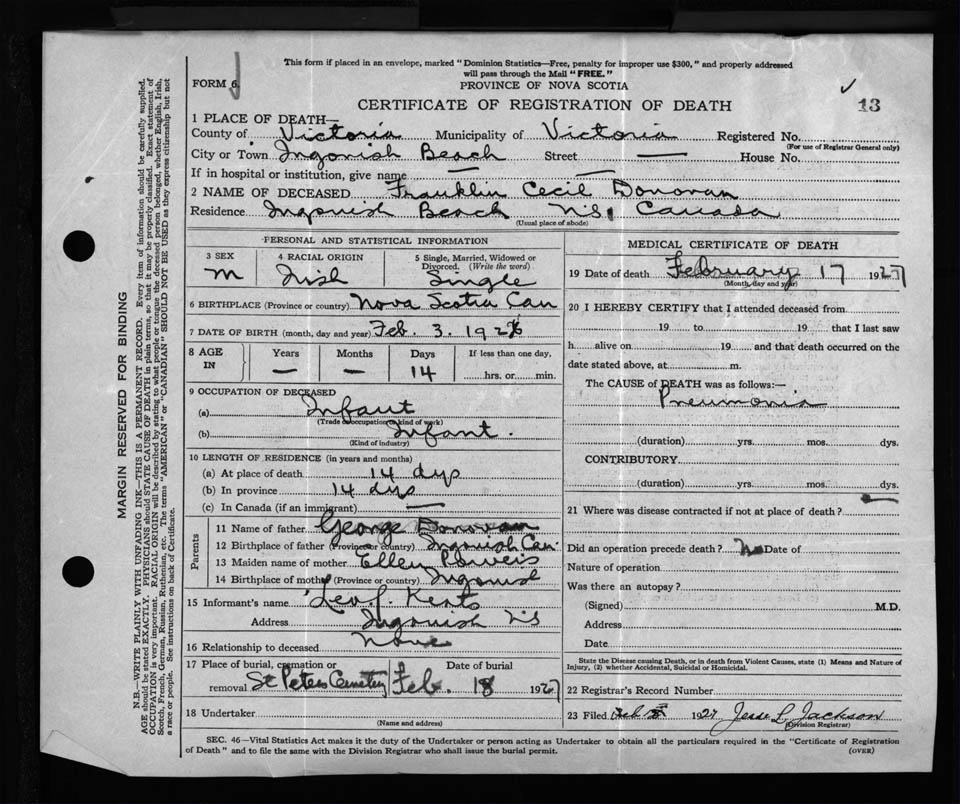 This form if placed in an envelope, marked "Dominion Statistics—Free, penalty for improper use $300," and properly addressed
will pass through the Mail "FREE."
FORM 6
PROVINCE OF NOVA SCOTIA
13
CERTIFICATE OF REGISTRATION OF DEATH
1 PLACE OF DEATH—
County of Victoria Municipality of Victoria Registered No.
(For use of Registrar General only)
City or Town Ingonish Beach Street — House No.
If in hospital or institution, give name —
2 NAME OF DECEASED Franklin Cecil Donovan
Residence Ingonish Beach N.S. Canada
(Usual place of abode)
PERSONAL AND STATISTICAL INFORMATION
3 SEX 4 RACIAL ORIGIN 5 Single, Married, Widowed or
Divorced. (Write the word)
M Irish Single
6 BIRTHPLACE (Province or country) Nova Scotia Can
7 DATE OF BIRTH (month, day and year) Feb. 3. 1927
8 AGE IN Years Months Days If less than one day,
— — 14 hrs. or min.
9 OCCUPATION OF DECEASED
(a) Infant
(Trade or occupation or kind of work)
(b) Infant.
(Kind of industry)
10 LENGTH OF RESIDENCE (in years and months)
(a) At place of death 14 dys
(b) In province 14 dys
(c) In Canada (if an immigrant) —
Parents
11 Name of father George Donovan
12 Birthplace of father (Province or country) Ingonish Can.
13 Maiden name of mother Ellen Powers
14 Birthplace of mother (Province or country) Ingonish
15 Informant's name
Address Ingonish NS
16 Relationship to deceased None
17 Place of burial, cremation or removal St Peters Cemetery Date of burial Feb. 18 1927
18 Undertaker
(Name and address)
MEDICAL CERTIFICATE OF DEATH
19 Date of death February 17 1927
(Month, day and year)
20 I HEREBY CERTIFY that I attended deceased from
19 to 19 that I last saw
h alive on 19 and that death occurred on the
date stated above, at m.
The CAUSE of DEATH was as follows:—
Pneumonia
(duration) yrs. mos. dys.
CONTRIBUTORY
(duration) yrs. mos. dys.
21 Where was disease contracted if not at place of death?
Did an operation precede death? No Date of
Nature of operation
Was there an autopsy?
(Signed) M.D.
Address
Date
State the Disease causing Death, or in death from Violent Causes, state (1) Means and Nature of
Injury, (2) whether Accidental, Suicidal or Homicidal.
22 Registrar's Record Number
23 Filed Feb 1927 Jesse L. Jackson
(Division Registrar)
SEC. 46—Vital Statistics Act makes it the duty of the Undertaker or person acting as Undertaker to obtain all the particulars required in the "Certificate of Registration
of Death" and to file the same with the Division Registrar who shall issue the burial permit. (OVER)
MARGIN RESERVED FOR BINDING
N.B.—WRITE PLAINLY WITH UNFADING INK—THIS IS A PERMANENT RECORD. Every item of information should be carefully supplied.
AGE should be stated EXACTLY. PHYSICIANS should STATE CAUSE OF DEATH in plain terms, so that it may be properly classified. Exact statement of
OCCUPATION is very important. RACIAL ORIGIN will be described by stating to what people or tongue the deceased person belonged, whether English, Irish,
Scotch, French, German, Russian, Ruthenian, etc. The terms "AMERICAN" or "CANADIAN" SHOULD NOT BE USED as they express citizenship but not
a race or people. See instructions on back of Certificate.